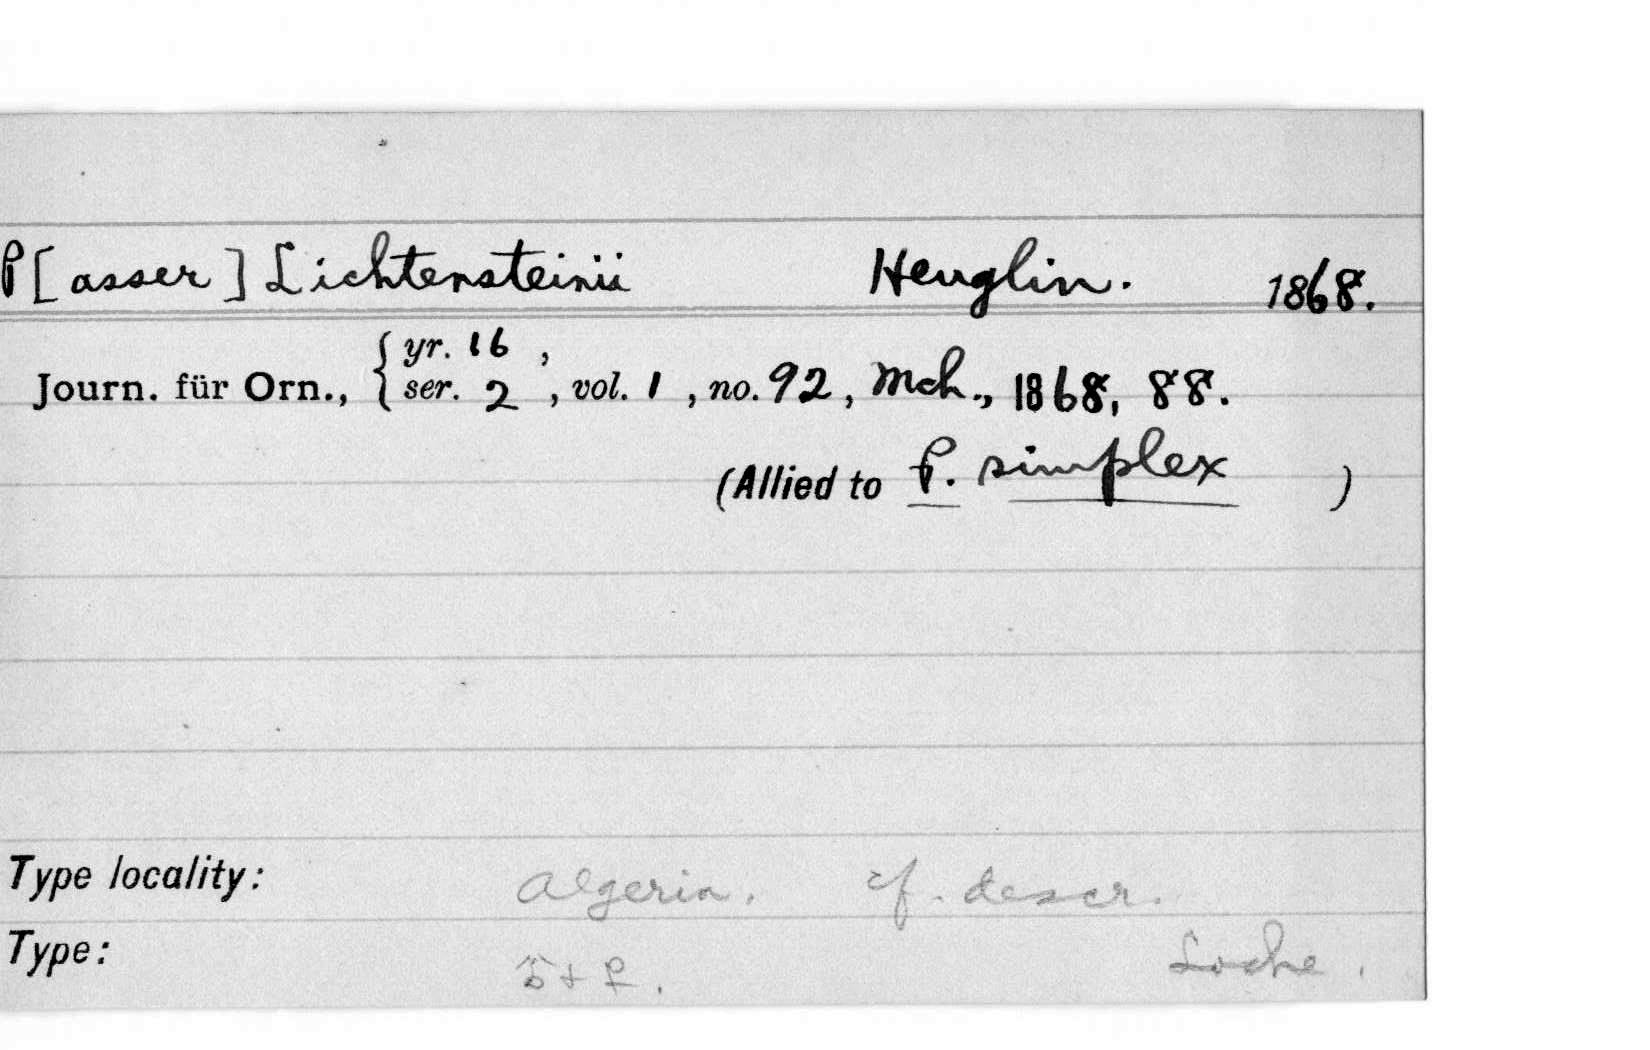 P[asser] Lichtensteinii Heuglin. 1868.
Journ. für Orn., { yr. 16 ,
ser. 2 , vol. 1 , no. 92, Mch., 1868, 88.
(Allied to P. simplex )
Type locality: Algeria. cf. descr.
Type: ♂ + ♀. Loche.